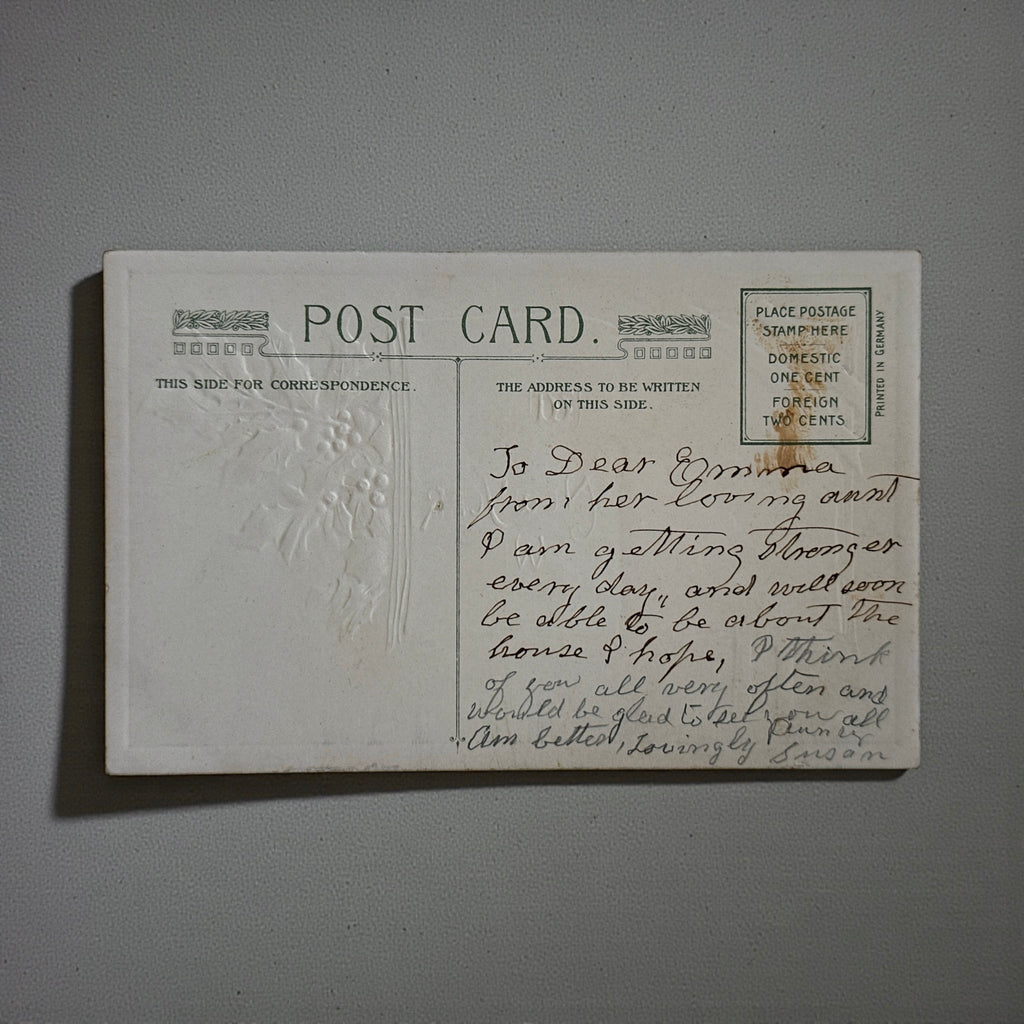 POST CARD.
THIS SIDE FOR CORRESPONDENCE.
THE ADDRESS TO BE WRITTEN
ON THIS SIDE.
PLACE POSTAGE
STAMP HERE
DOMESTIC
ONE CENT
FOREIGN
TWO CENTS
PRINTED IN GERMANY
To Dear Emma
from her loving aunt
I am getting stronger
every day,, and will soon
be able to be about the
house I hope, I think
of you all very often and
would be glad to see you all
Am better, Lovingly
Susan